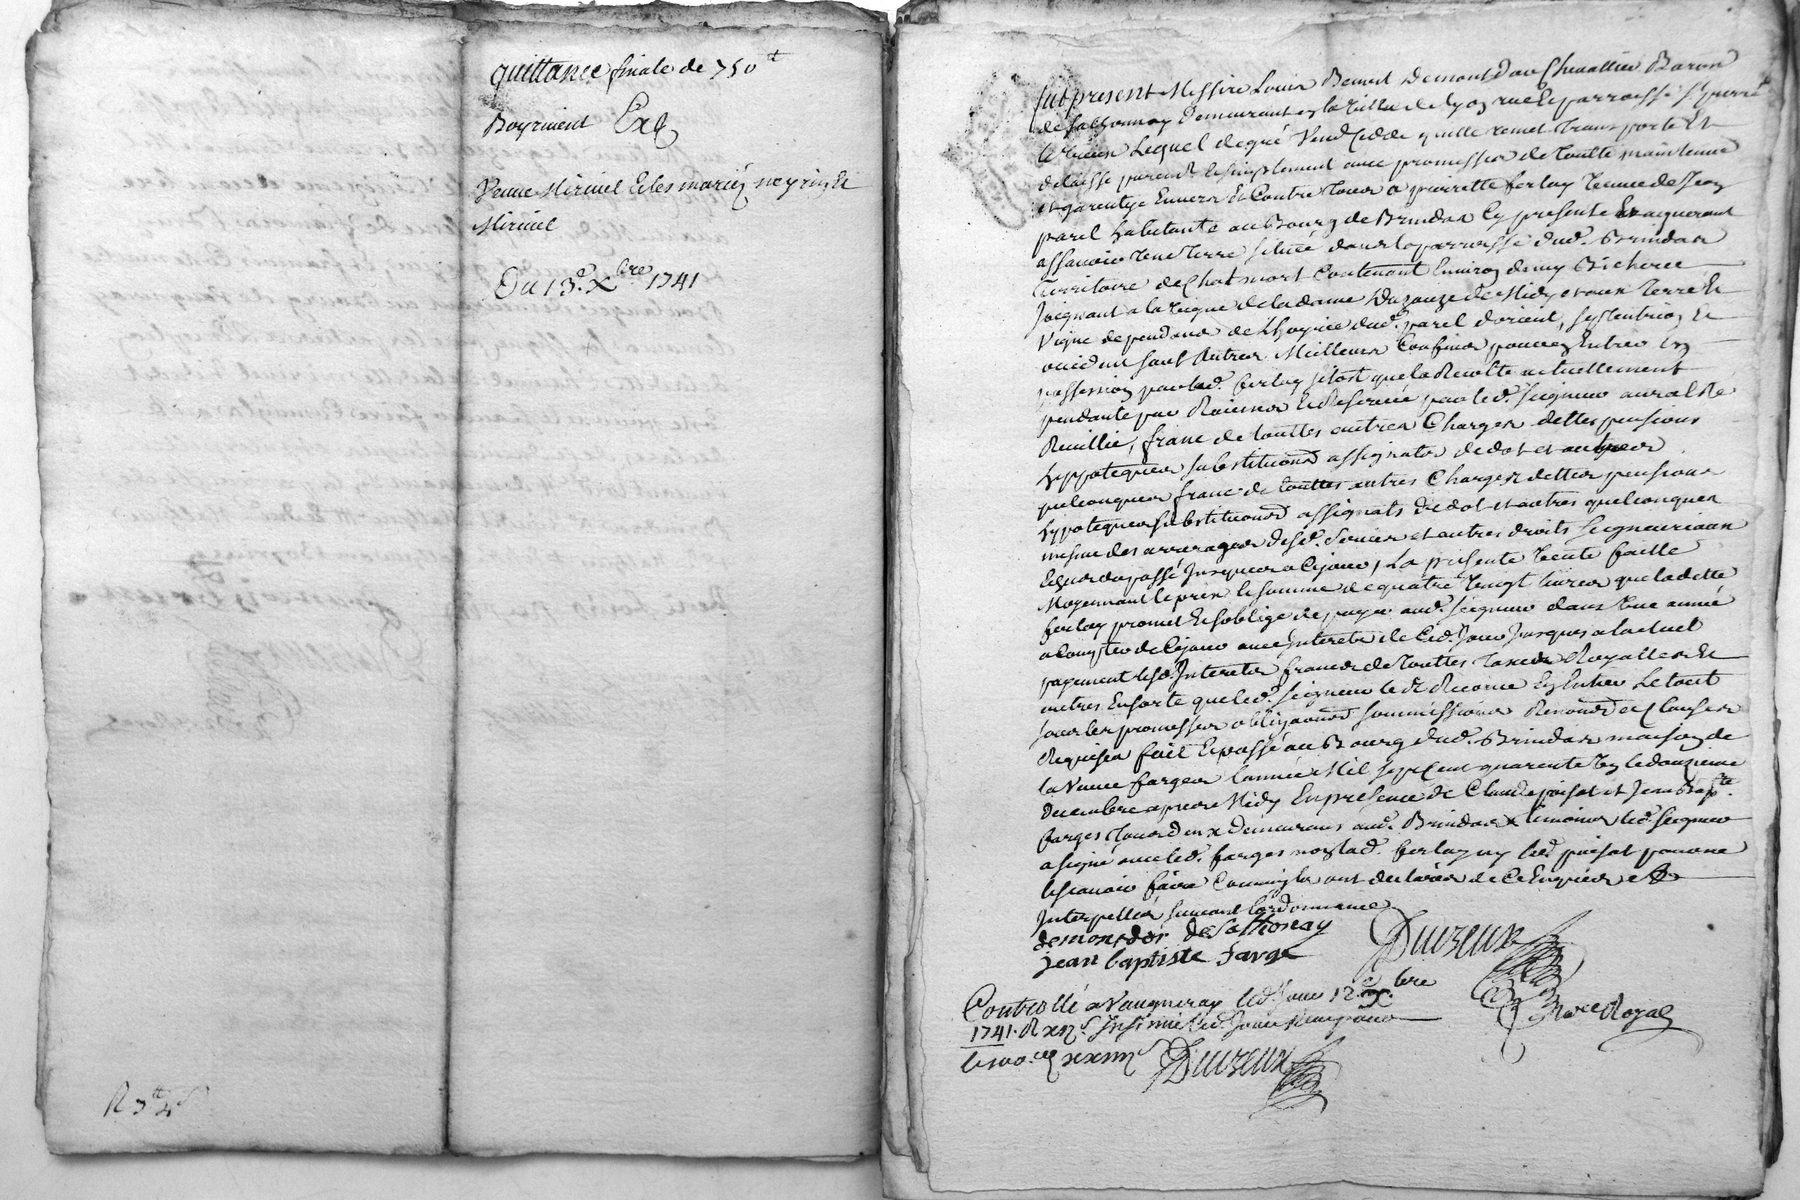 quittance finale de 750 tt
Boyrivent Exp
Veuve Miriuel et les mariés neyrin et
Miriuel
Du 13e Xbre 1741
R 3 tt 4 s
fut present Messire Louis Benoit Demont Dor Chevallier Baron
de Sathonnay Demeurant en la ville de Lyon rue et parroisse St pierre
le vieux Lequel de gré vend cedde quitte remet transporte et
delaisse purem.t et simplement avec promesses de toutte maintenue
et garentye Envers et Contre tous a pierrette ferlay veuve de Jean
parel habitante au Bourg de Brindas Cy presente et aquerant
assavoir une terre scituée dans la parroisse dud. Brindas
territoire de Chatmort Contenant Environ demy Bicherée
Joignant a la vigne de la dame Duzouze de Midy et aux terre et
vigne dependans de L'hoyrie dud. parel d'orient, septentrion et
occident sauf autres Meilleurs Confins pour en Entrer en
possession par lad. ferlay sitost que la Recolte actuellement
pendante par Racines et Reservée par led. seigneur aura esté
Reuillie, franc de touttes autres Charges dettes pensions
hyppoteques substitutions assignats de dot et autres
quelconques franc de touttes autres Charges dettes pensions
hypoteques substitutions assignats de dot et autres quelconques
mesme des arrerages desd. Servis et autres droits seigneuriaux
Echus du passé Jusques a Cejour, La presente vente faitte
Moyennant le prix et somme de quatre vingt livres que ladette
ferlay promet et s'oblige de payer aud. seigneur dans une année
a Compter de Cejour avec Interets de Ced. Jour Jusques a l'actuel
payement lesd. Interets francs de touttes taxes Royalles et
autres Ensorte que led. seigneur les Recoive En Entier Le tout
sous les promesses obligations soummissions Renonc. et Clauses
Requises fait et passé au Bourg dud. Brindas maison de
la veuve farges l'année Mil sept Cent quarente un le douzieme
Decembre apres Midy En presence de Claude poisat et Jean Bapte
farges tous deux Demeurans aud. Brindas temoins led. seigneur
a signé avec led. farges non lad. ferlay ny led. poisat pour ne
le scavoir faire Comme ils ont declaré de Ce Enquis et
Interpellés suivant l'ordonnance
demont dor de Sathonay
jean baptiste farge
Duvzeux
Nore Royal
Controllé a Vaugneray led. Jour 12e Xbre
1741. R xn s Insinué led. Jour
Duvzeux